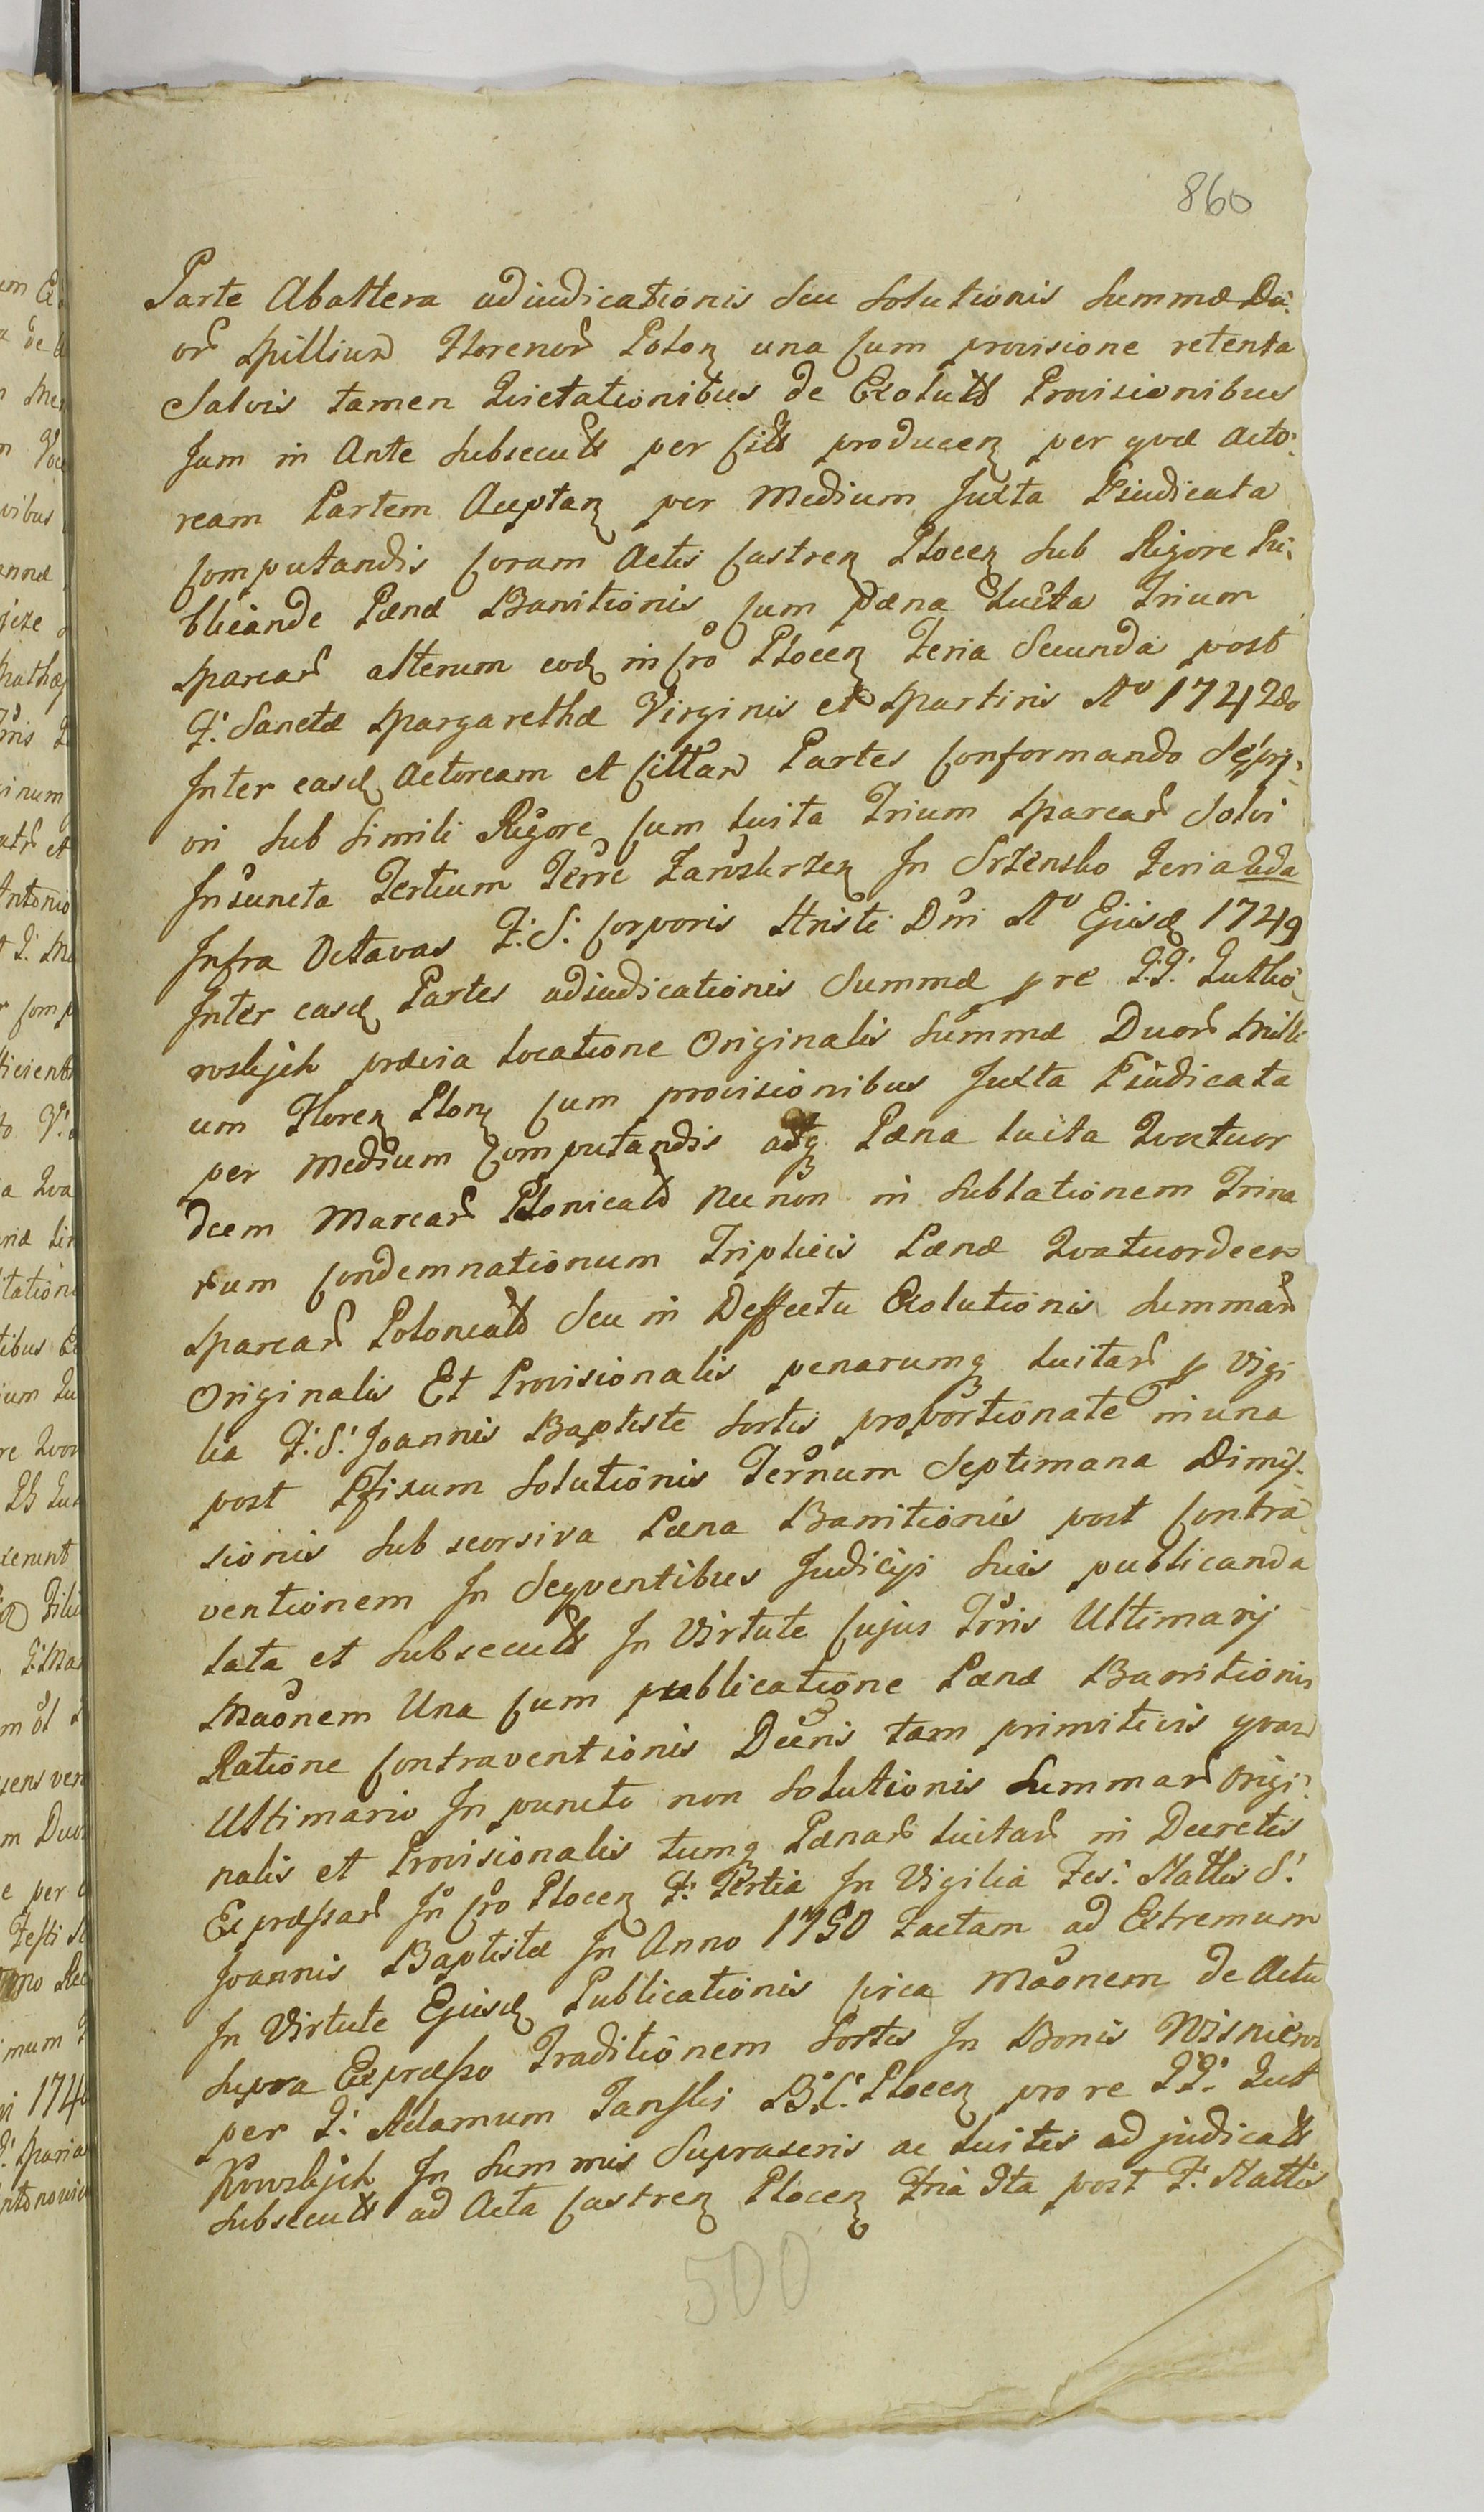 860
Parte Abaltera adiudicationis Seu Solutionis Summæ Du-
or Millium Florenor Polon una Cum provisione retenta
Salvis tamen Quietationibus de Exolutis Provisionibus
Jam in Ante Subsecutis per Citt producen per qvæ Acto-
ream Partem Acceptan per Medium Juxta Pjudicata
Computandis Coram Actis Castren Plocen Sub Rigore Pu-
blicande Pænæ Banitionis Cum Pæna Luita Trium
Marcar alterum eod in Cro Plocen Feria Secunda post
F. Sanctæ Margarethæ Virginis et Martiris Ao 1742do
Inter easd Actoream et Cittam Partes Conformando Se pri-
ori Sub Simili Rigore Cum Luita Trium Marcar Solvi
Iniuncta Tertium Terre Zawskrzen In Srzensko Feria 2da
Infra Octavas F. S. Corporis Xristi Dni Ao Ejusd 1749
Inter easd Partes adiudicationis Summæ p re PP. Lutko
wskich prævia Locatione Originalis Summæ Duor Milli
um Floren Plon Cum provisionibus Juxta Pjudicata
per Medium Computandis adq Pæna Luita Qvatuor
decem Marcar Plonicalis Nec non in Sublationem Trina
rum Condemnationum Triplicis Pænæ Qvatuordecem
Marcar Polonicalis Seu in Deffectu Exolutionis Summar
Originalis Et Provisionalis penarumq Luitar p Vigi
lia F. S. Joannis Baptiste Sortis proportionate in una
post Pfixum Solutionis Ternum Septimana Dimis-
sionis Sub seorsiva Pæna Banitionis post Contra
ventionem In Seqventibus Judicijs Suis publicanda
Lata et Subsecutis In Virtute Cujus Tris Ultimarij
Maonem Una Cum publicatione Pænæ Banitionis
Ratione Contraventionis Decris tam primitivis qvam
Ultimario In puncto non Solutionis Summar Origi-
nalis et Provisionalis tumq Pænar Luitar in Decretis
Expræssar In Cro Plocen F. Tertia In Vigilia Fes. Nattis S.
Joannis Baptistæ In Anno 1750 Factam ad Extremum
In Virtute Ejusd Publicationis Circa Maonem de Actu
Supra Expræsso Traditionem Sortis In Bonis Wisniew
per F. Adamum Janski B. C. Plocen pro re PP. Lut
kowskich In Summis Suprascris ac Luitis adjudicatis
Subsecutis ad Acta Castren Plocen Fria 3ta post F. Nattis
500